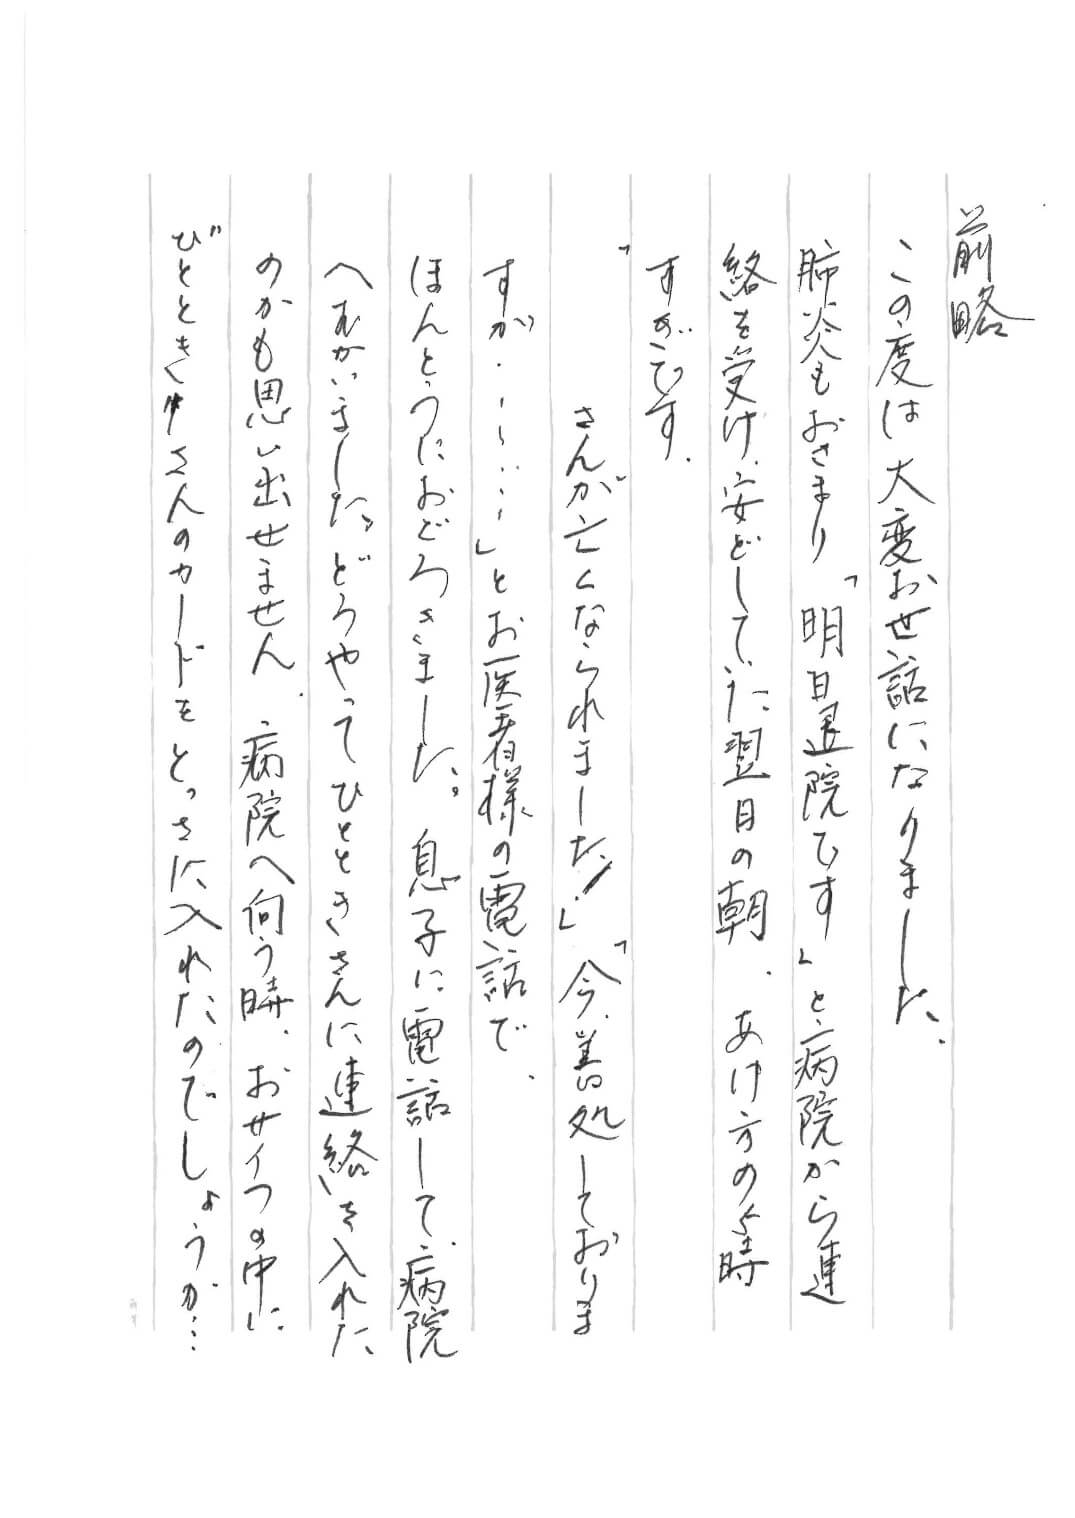 前略
この度は大変おせ話になりました。
肺炎もおさまり「明日退院です」と病院から連
絡を受け、安どしていた翌日の朝、あけ方の5時
すぎです。
「　　　さんが亡くなられました！」「今、善処しておりま
すが・・・・・・」とお医者様の電話で、
ほんとうにおどろきました。息子に電話して、病院
へむかいました。どうやってひとときさんに連絡を入れた
のかも思い出せません。病院へ向う時、おサイフの中に
"ひととき"さんのカードをとっさに入れたのでしょうか…